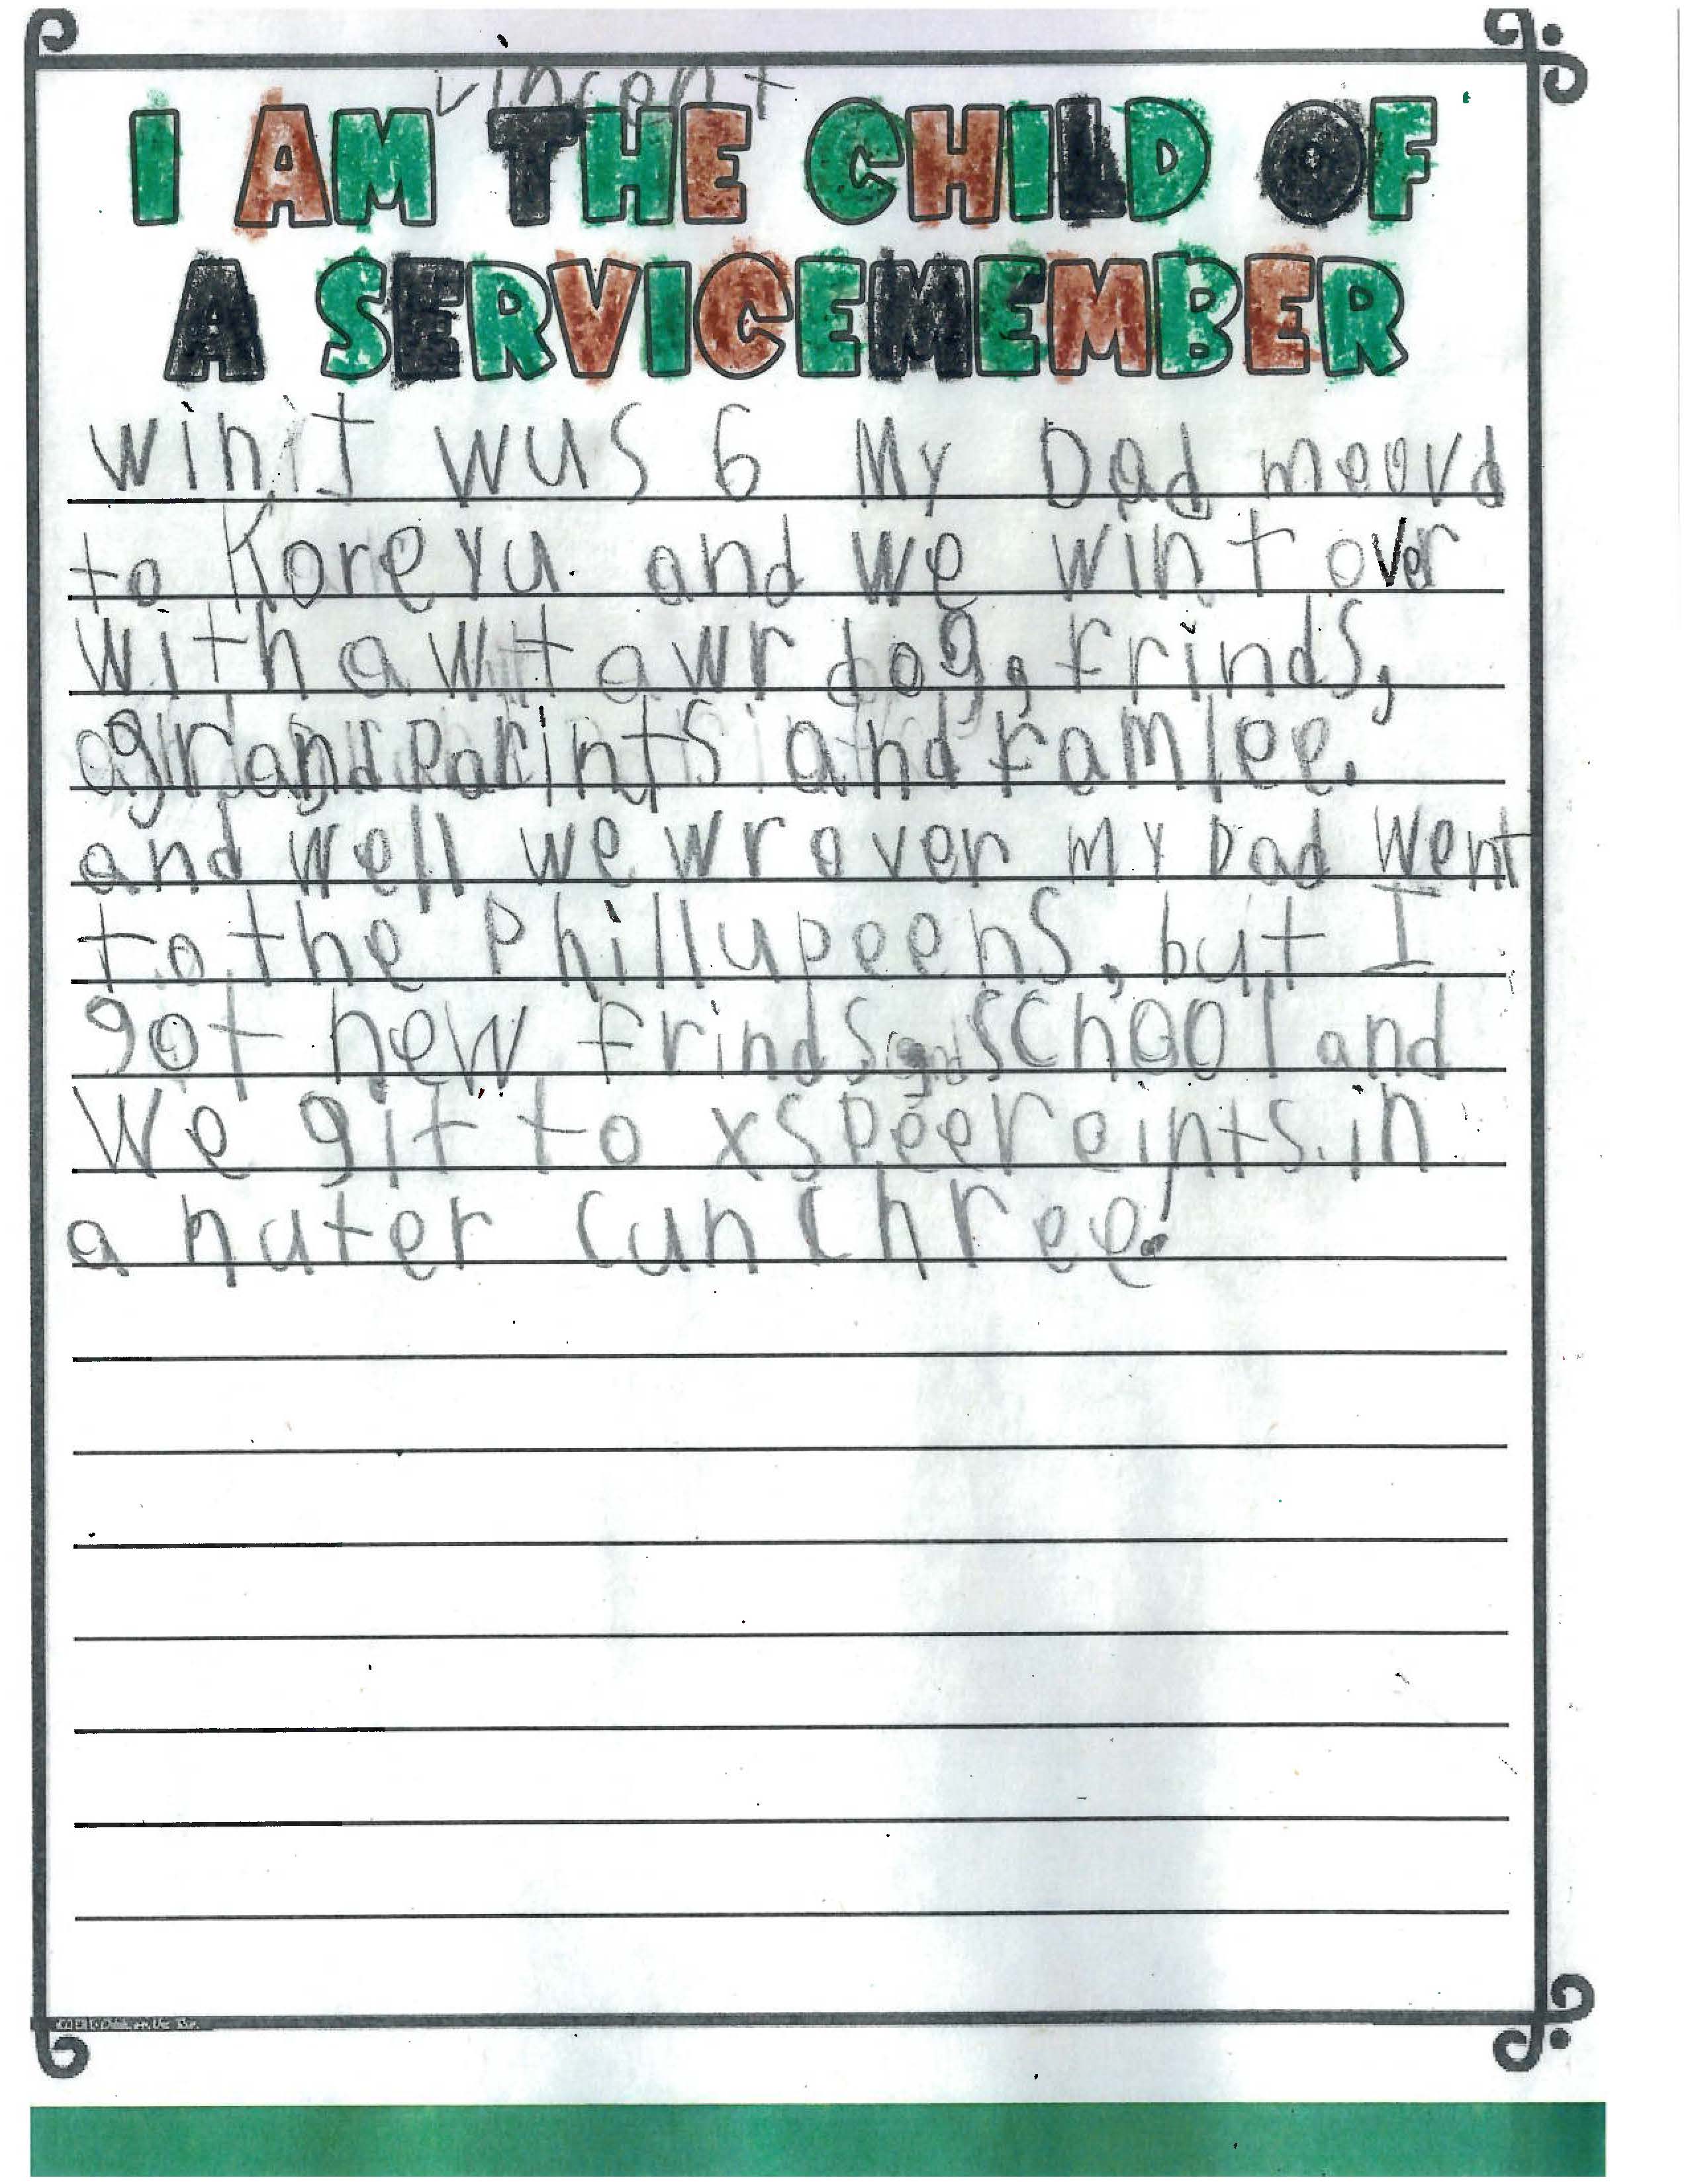 Vincent
I AM THE CHILD OF
A SERVICEMEMBER
win I wus 6 My Dad moovd
to Koreyu. and we wint over
with awt awr dog, frinds,
grandparints and famlee.
and well we wr over my Dad went
to the Phillupeens, but I
got new frinds and school and
We git to xspeereints in
a nuter cunchree!